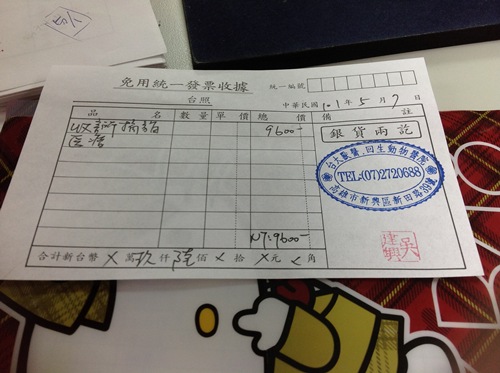 免用統一發票收據
統一編號
台照
中華民國101年5月7日
品名 數量 單價 總價 備註
9600-
醫療
銀貨兩訖
台大獸醫.回生動物醫院
TEL:(07)2720688
高雄市新興區新田路39號
NT:9600-
合計新台幣 X 萬 玖 仟 陸 佰 X 拾 X 元 X 角